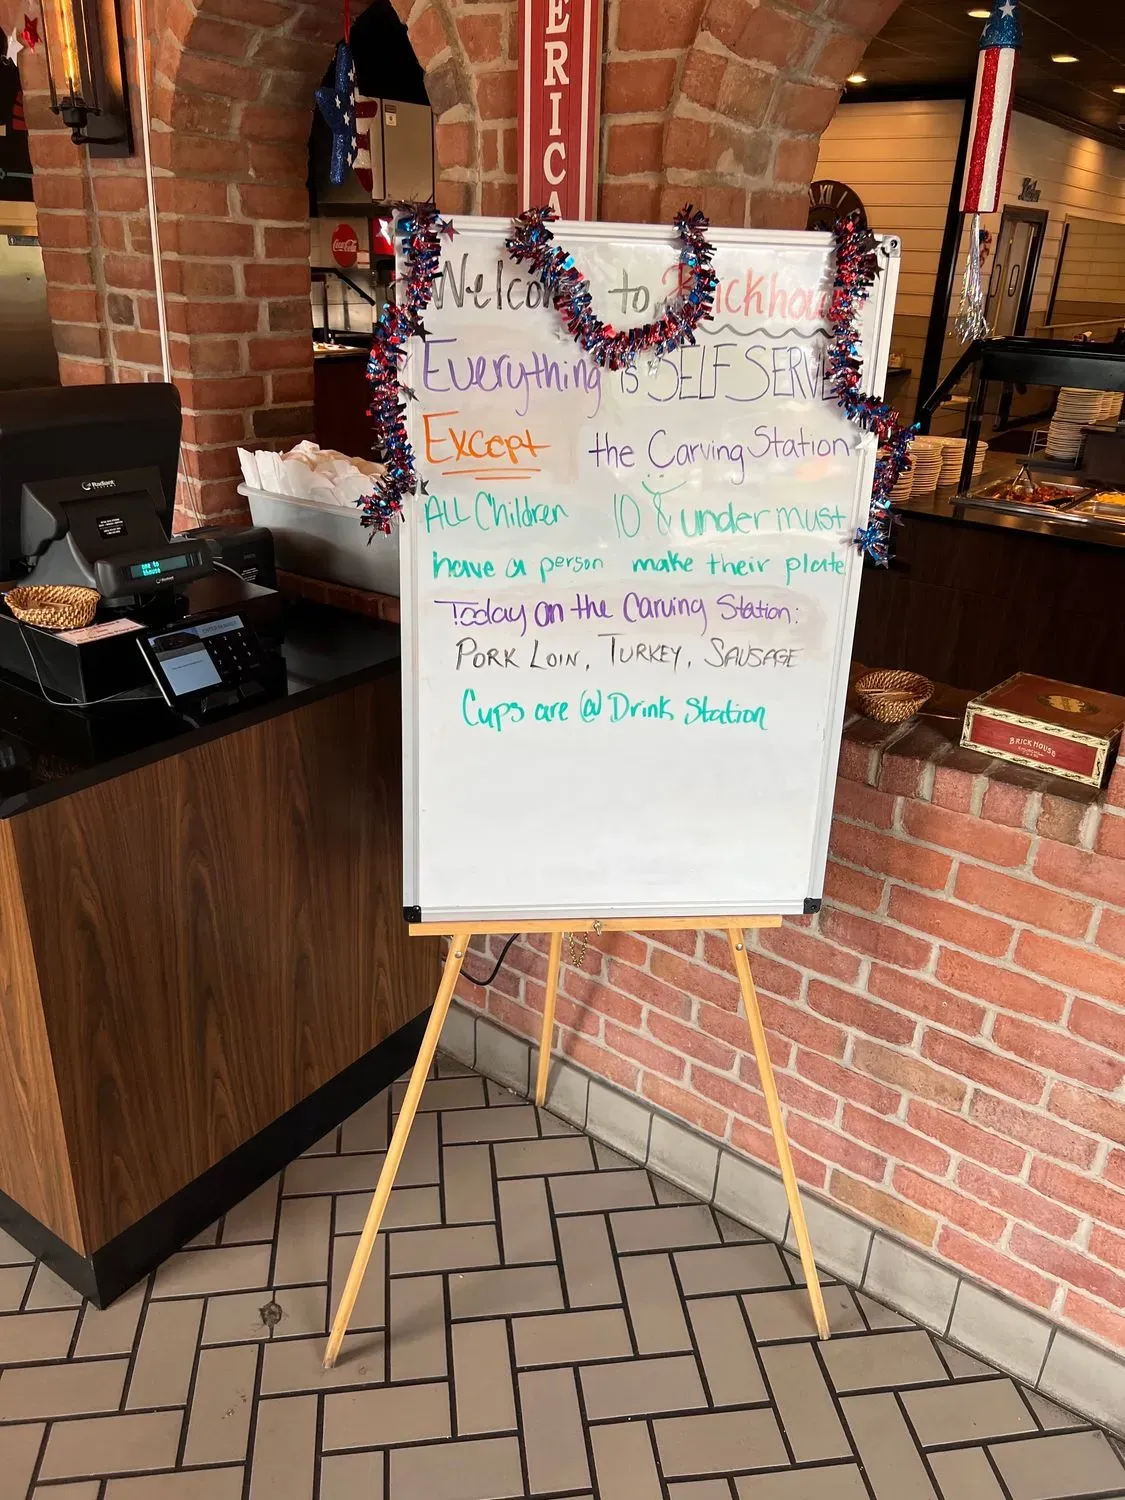 ERICA
Coca-Cola
Welcom to Brickhou
Everything is SELF SERVE
Except the Carving Station
ALL Children 10 & under must
have a person make their plate
Today on the Carving Station:
PORK LOIN, TURKEY, SAUSAGE
Cups are @ Drink Station
Radiant
BRICKHOUSE
XII